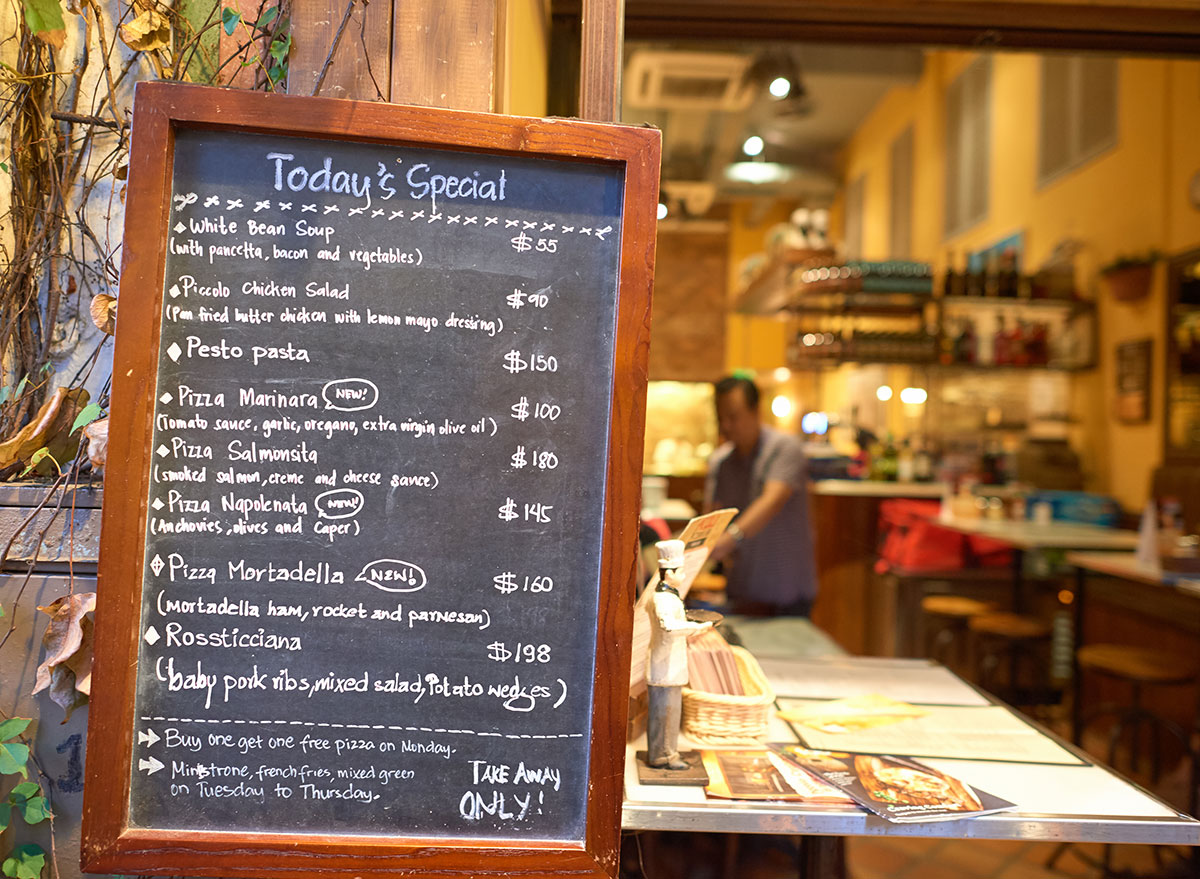 Today's Special
White Bean Soup $55
(with pancetta, bacon and vegetables)
Piccolo Chicken Salad $90
(Pan fried butter chicken with lemon mayo dressing)
Pesto pasta $150
Pizza Marinara NEW! $100
(Tomato sauce, garlic, oregano, extra virgin olive oil)
Pizza Salmonsita $180
(smoked salmon, creme and cheese sauce)
Pizza Napolenata NEW! $145
(Anchovies, olives and Caper)
Pizza Mortadella NEW! $160
(mortadella ham, rocket and parmesan)
Rossticciana $198
(baby pork ribs, mixed salad, Potato wedges)
Buy one get one free pizza on Monday.
Minstrone, french fries, mixed green
on Tuesday to Thursday.
TAKE AWAY
ONLY!